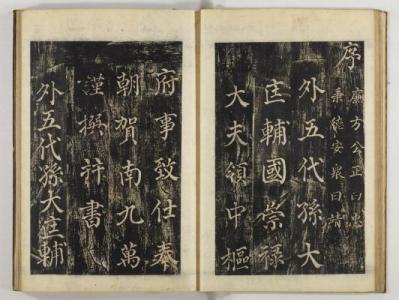 序
廉方公正曰忠
柔德安衆曰靖
外五代孫大
匡輔國崇祿
大夫領中樞
府事致仕奉
朝賀南九萬
謹撰幷書
外五代孫大匡輔